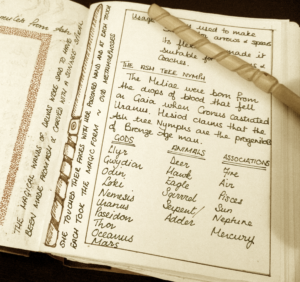 Usage
used to make
arrows & spears
Its flex
made it
suitable for
coaches
THE ASH TREE NYMPH
The Meliae were born from
the drops of blood that fell
on Gaia when Cronus castrated
Uranus. Hesiod claims that the
Ash tree Nymphs are the progenitors
of Bronze age man.
GODS
Llyr
Gwydian
Odin
Loki
Nemesis
Uranus
Poseidon
Thor
Oceanus
Mars
ANIMALS
Deer
Hawk
Eagle
Squirrel
Serpent/
Adder
ASSOCIATIONS
Fire
Air
Pisces
Sun
Neptune
Mercury
THE MAGICAL WANDS OF DRUIDS WERE SAID TO HAVE
BEEN MADE FROM ASH & CARVED WITH A
SHE TOUCHED THEIR FACES WITH HER POISONED WAND AND AT EACH TOUCH
EACH TOOK THE MAGIC FORM ~ OVID METAMORPHOSES